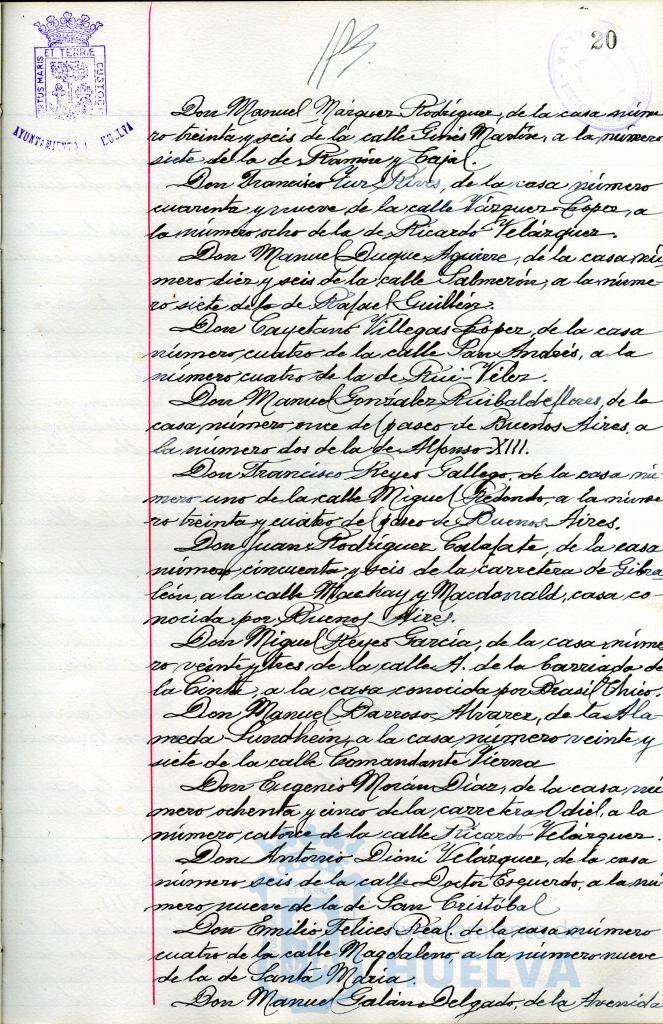 20
ET TERRÆ
PORTUS MARIS
CUSTODIA
AYUNTAMIENTO HUELVA
Don Manuel Márquez Rodríguez, de la casa núme
ro treinta y seis de la calle Ginés Martín, a la número
siete de la de Ramón y Cajal.
Don Francisco Rives, de la casa número
cuarenta y nueve de la calle Vázquez López, a
la número ocho de la de Ricardo Velázquez.
Don Manuel Duque Aguirre, de la casa nú
mero diez y seis de la calle Salmerón, a la núme
ro siete de la de Rafael Guillén.
Don Cayetano Villegas López, de la casa
número cuatro de la calle San Andrés, a la
número cuatro de la de Rui-Vélez.
Don Manuel González Ruibaldeflores, de la
casa número once del paseo de Buenos Aires, a
la número dos de la de Alfonso XIII.
Don Francisco Reyes Gallego, de la casa nú
mero uno de la calle Miguel Redondo, a la núme
ro treinta y cuatro del paseo de Buenos Aires.
Don Juan Rodríguez Calafate, de la casa
número cincuenta y seis de la carretera de Gibra
león, a la calle Mackay y Macdonald, casa co-
nocida por Buenos Aires.
Don Miguel Reyes García, de la casa núme
ro veinte y tres de la calle A. de la barriada de
la Cinta, a la casa conocida por Brasil Chico.
Don Manuel Barroso Alvarez, de la Ala
meda Sundhein, a la casa número veinte y
siete de la calle Comandante Vierna
Don Eugenio Morán Díaz, de la casa nú
mero ochenta y cinco de la carretera Odiel, a la
número catorce de la calle Ricardo Velázquez.
Don Antonio Dioni Velázquez, de la casa
número seis de la calle Doctor Esquerdo, a la nú
mero nueve de la de San Cristóbal
Don Emilio Felices Real, de la casa número
cuatro de la calle Magdalena, a la número nueve
de la de Santa María.
Don Manuel Galán Delgado, de la Avenida
ET TERRÆ
Ayuntamiento de
HUELVA